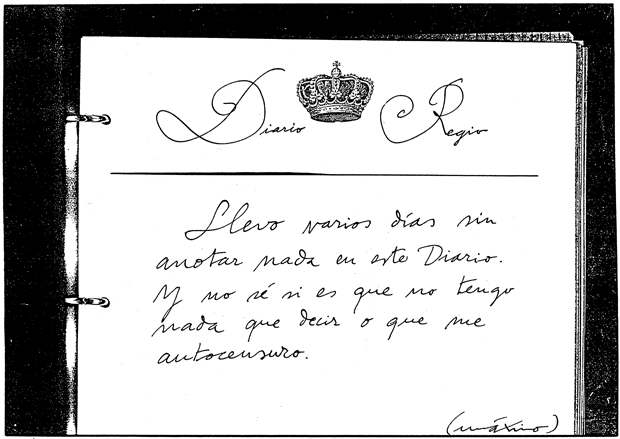 Diario Regio
Llevo varios días sin
anotar nada en este Diario.
Y no sé si es que no tengo
nada que decir o que me
autocensuro.
(máximo)